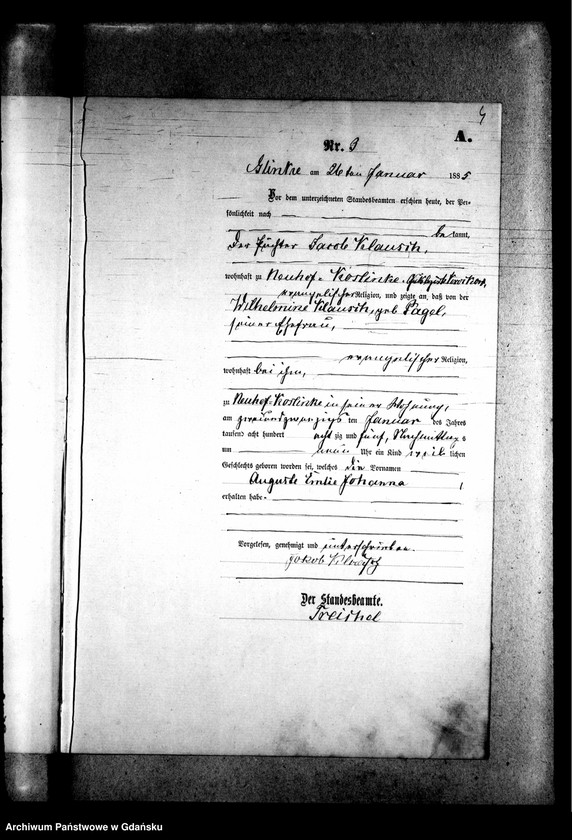 4
A.
Nr. 3
Glinke am 26ten Januar 1885
Vor dem unterzeichneten Standesbeamten erschien heute, der Per-
sönlichkeit nach
be kannt,
der Pächter Jacob Klawsch,
wohnhaft zu Neuhof-Koslinke
evangelischer Religion, und zeigte an, daß von der
Wilhelmine Klawsch, geb Pagel,
seiner Ehefrau,
evangelischer Religion,
wohnhaft bei ihm,
zu Neuhof-Koslinke in seiner Wohnung,
am zweiundzwanzigs ten Januar des Jahres
tausend acht hundert acht zig und fünf, Nachmittags
um neun Uhr ein Kind weib lichen
Geschlechts geboren worden sei, welches die Vornamen
Auguste Emilie Johanna
erhalten habe.
Vorgelesen, genehmigt und unterschrieben.
Jakob
Der Standesbeamte.
Treichel
Archiwum Państwowe w Gdańsku